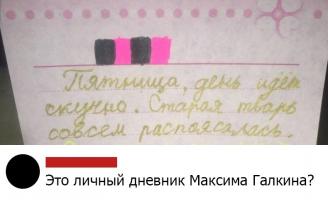 Пятница, день идёт
скучно. Старая тварь
совсем распоясалась.
Это личный дневник Максима Галкина?